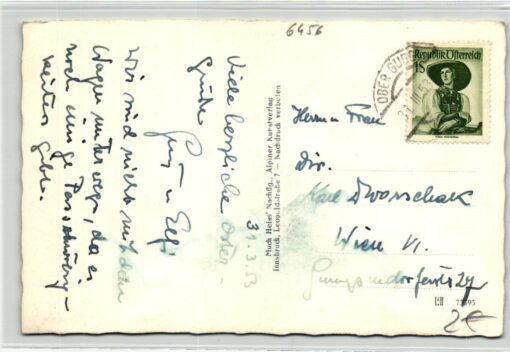 6456
Viele herzliche Oster-
grüße
Gust u. Elfi
31.3.53
Wir sind nicht mit dem
Wagen unterwegs, da es
noch einige
weiter gibt.
Much Heiss' Nachflg., Alpiner Kunstverlag
Innsbruck, Leopoldstraße 7 — Nachdruck verboten
Republik Österreich
1S
OBER GURGL
Herrn u Frau
Dir.
Karl Dworschak
Wien VI.
Gumpendorferstr
2€